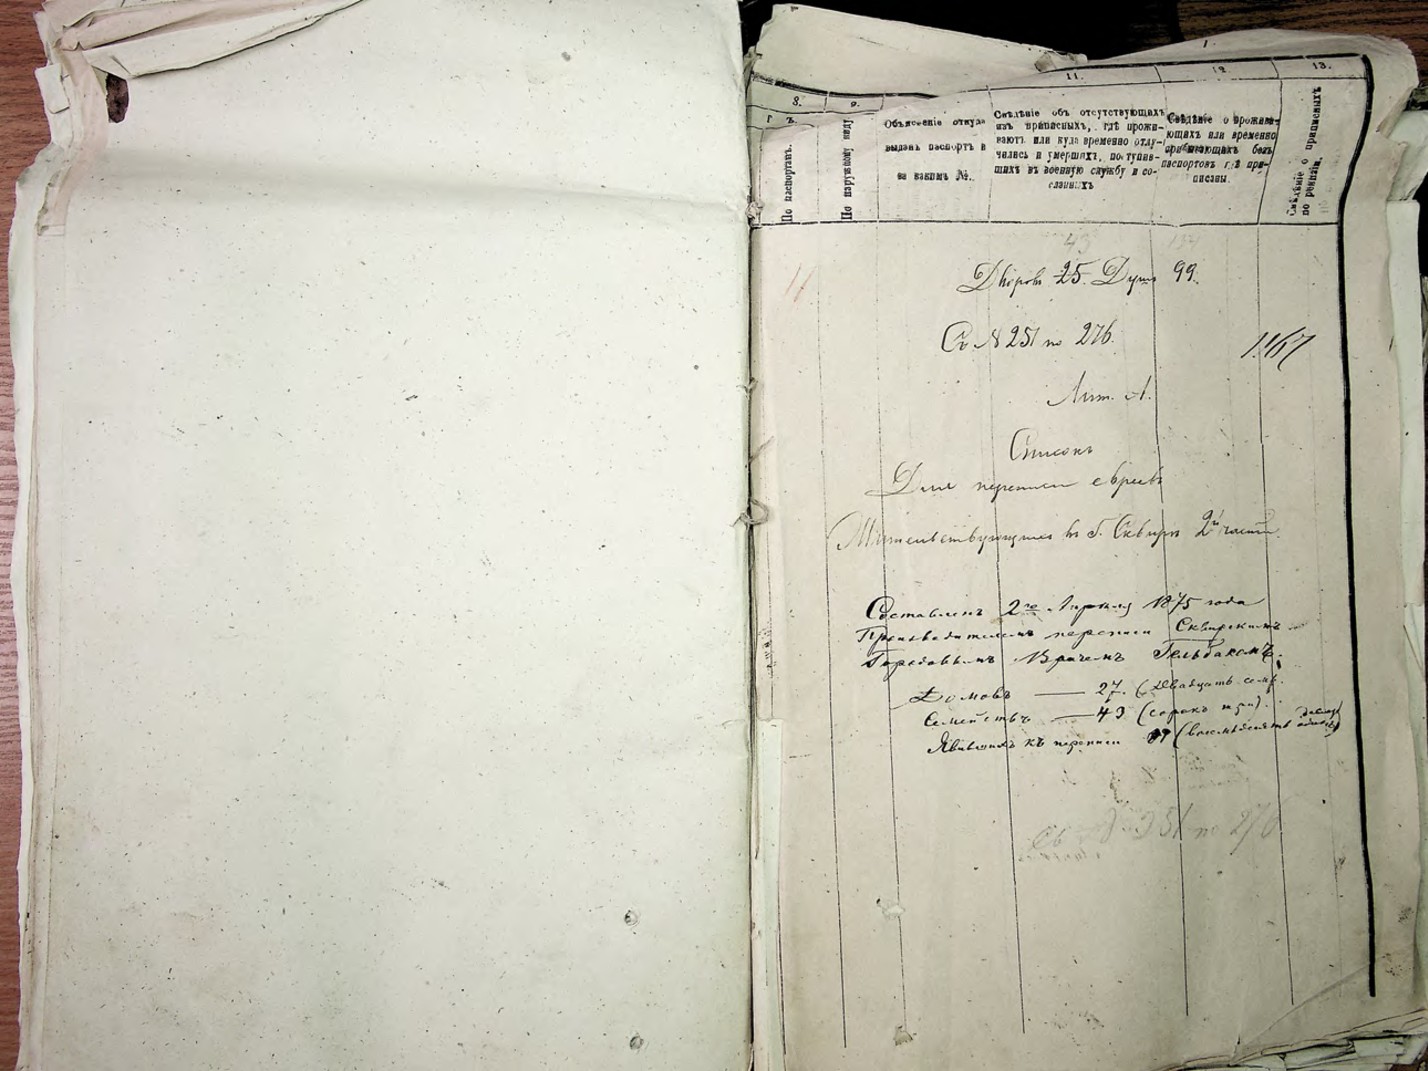 11. 12. 13.
8. 9.
По паспортамъ.
По наружному виду
Объясненіе откуда
выданъ паспортъ и
за какимъ №.
Свѣдѣніе объ отсутствующихъ
изъ приписныхъ, гдѣ прожи-
ваютъ или куда временно отлу-
чились и умершихъ, поступив-
шихъ въ военную службу и со-
сланныхъ
Свѣдѣніе о прожива-
ющихъ или временно
пребывающихъ безъ
паспортовъ гдѣ при-
писаны.
Свѣдѣніе о приписныхъ
по ревизіи.
43
Дворовъ 25. Душъ 99.
Съ № 251 по 276.
Лит. А.
Списокъ
Для переписи евреевъ
Жительствующихъ въ г. Сквирѣ 2й части
Составленъ 2го Апрѣля 1875 года
Производителемъ переписи Сквирскимъ
Городовымъ Врачемъ Гельбакомъ.
Домовъ — 27. (Двадцать семь
Семействъ — 43 (сорокъ три).
Явившихъ къ переписи (восемьдесятъ
Съ 251 по 276